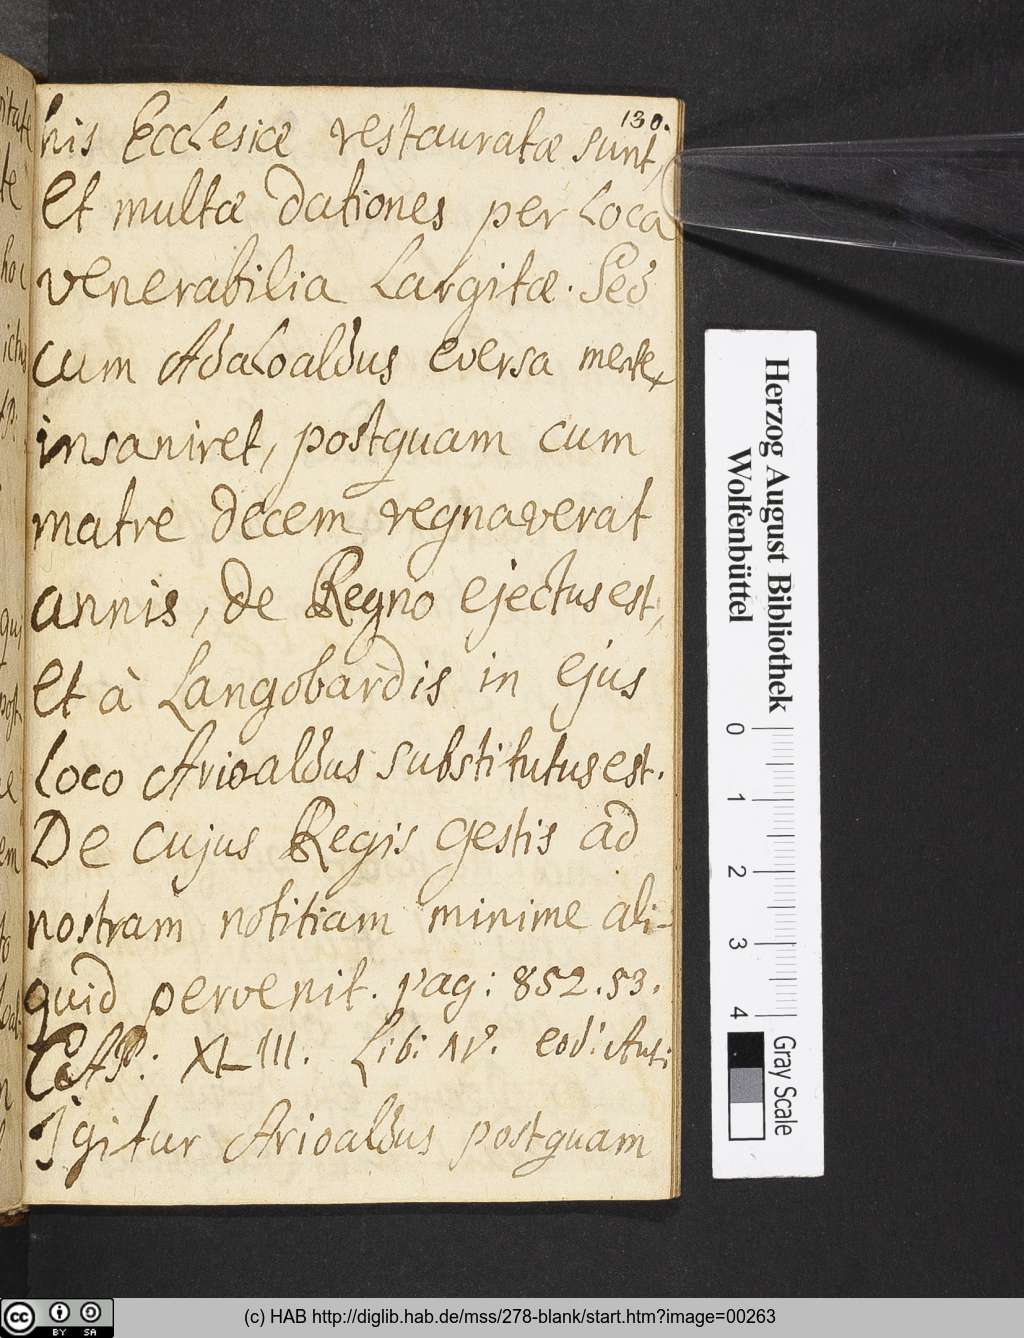 130.
his Ecclesiæ restauratæ sunt,
Et multæ dationes per Loca
venerabilia Largitæ. Sed
cum Adaloaldus eversa mente
insaniret, postquam cum
matre decem regnaverat
annis, de Regno ejectus est,
Et à Langobardis in ejus
Loco Arioaldus substitutus est.
De cujus Regis gestis ad
nostram notitiam minime ali-
quid pervenit. pag: 852. 53.
CAP. XLIII. Lib: IV. eod: Aut:
Igitur Arioaldus postquam
Herzog August Bibliothek
Wolfenbüttel
0 1 2 3 4
Gray Scale
cc BY SA
(c) HAB http://diglib.hab.de/mss/278-blank/start.htm?image=00263